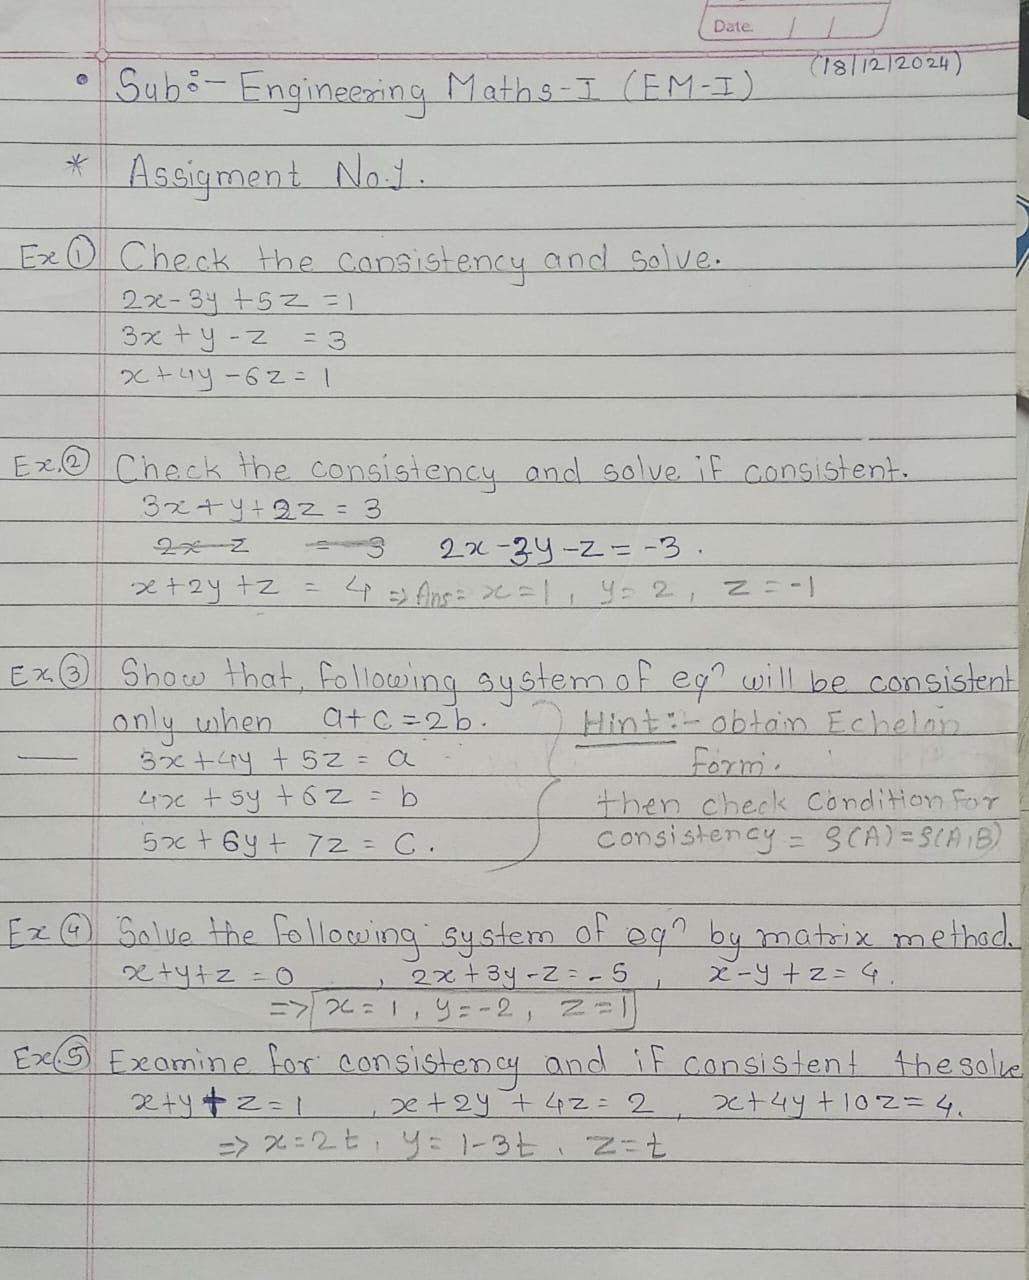 Date / /
(18/12/2024)
• Sub:- Engineering Maths-I (EM-I)
* Assigment No.1.
Ex ① Check the consistency and solve.
2x-3y+5z=1
3x+y-z =3
x+4y-6z=1
Ex.② Check the consistency and solve if consistent.
3x+y+2z=3
2x-z =-3 2x-3y-z=-3.
x+2y+z = 4 => Ans= x=1, y=2, z=-1
Ex.③ Show that, following system of eqⁿ will be consistent
only when a+c=2b. Hint:- obtain Echelon
3x+4y+5z=a form.
4x+5y+6z=b then check Condition For
5x+6y+7z=c. consistency = ρ(A)=ρ(A,B)
Ex ④ Solve the following system of eqⁿ by matrix method.
x+y+z=0 , 2x+3y-z=-5, x-y+z=4.
=> x=1, y=-2, z=1
Ex.⑤ Examine for consistency and if consistent the solve
x+y+z=1 , x+2y+4z=2, x+4y+10z=4.
=> x=2t, y=1-3t, z=t